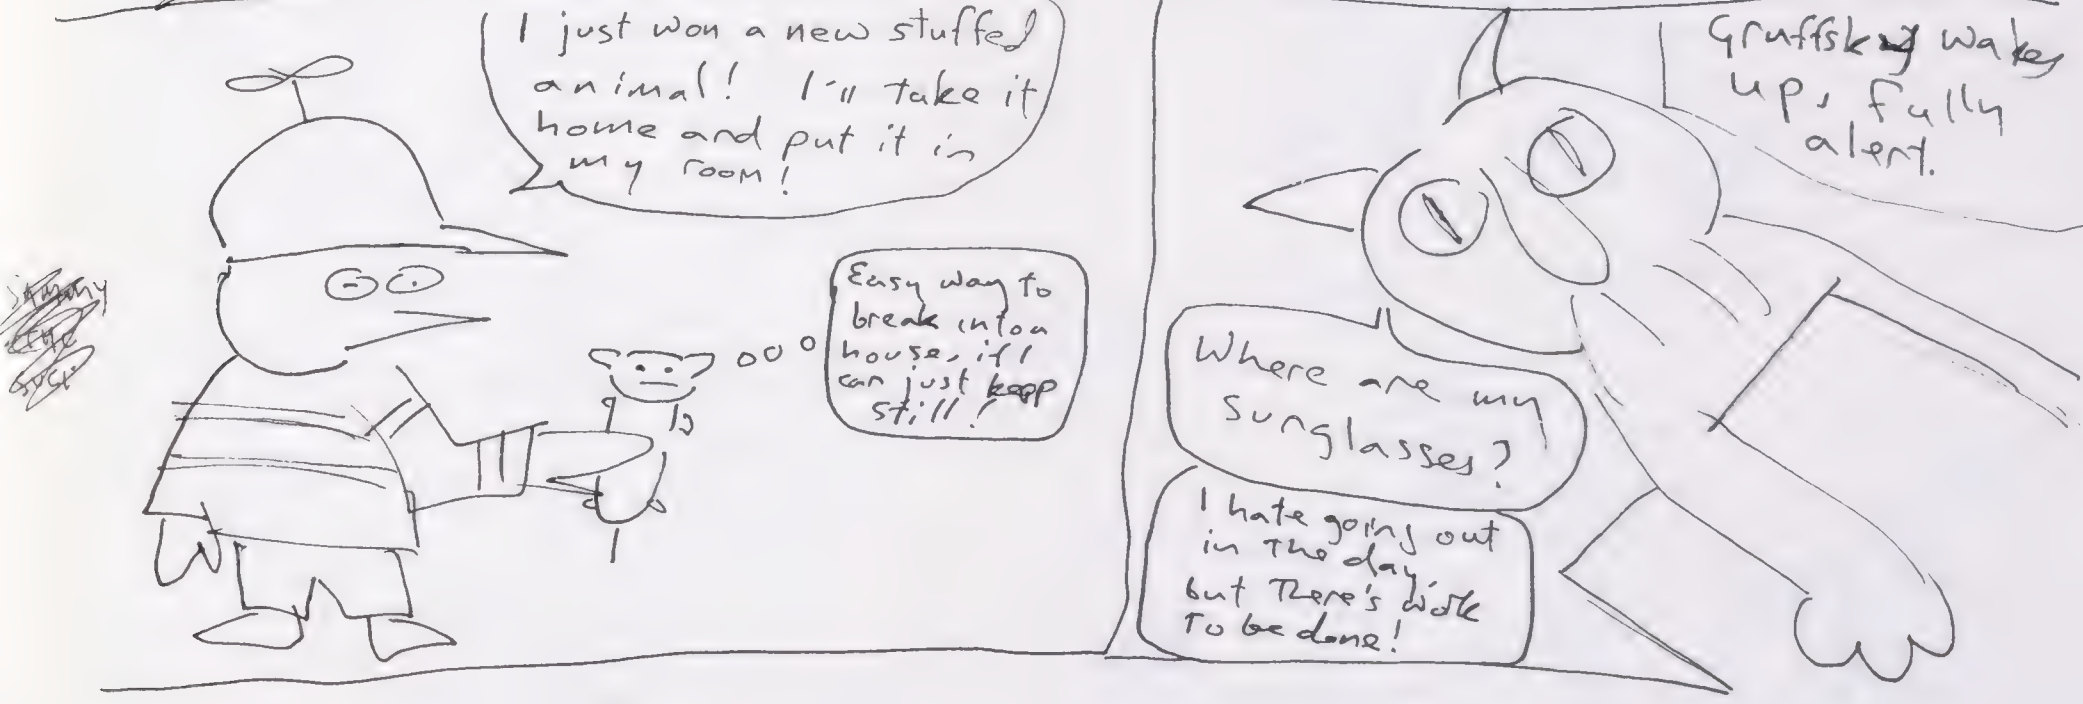 I just won a new stuffed
animal! I'll take it
home and put it in
my room!
Easy way to
break into a
house, if I
can just keep
still!
Gruffsky wakes
up, fully
alert.
Where are my
sunglasses?
I hate going out
in the day,
but there's work
to be done!